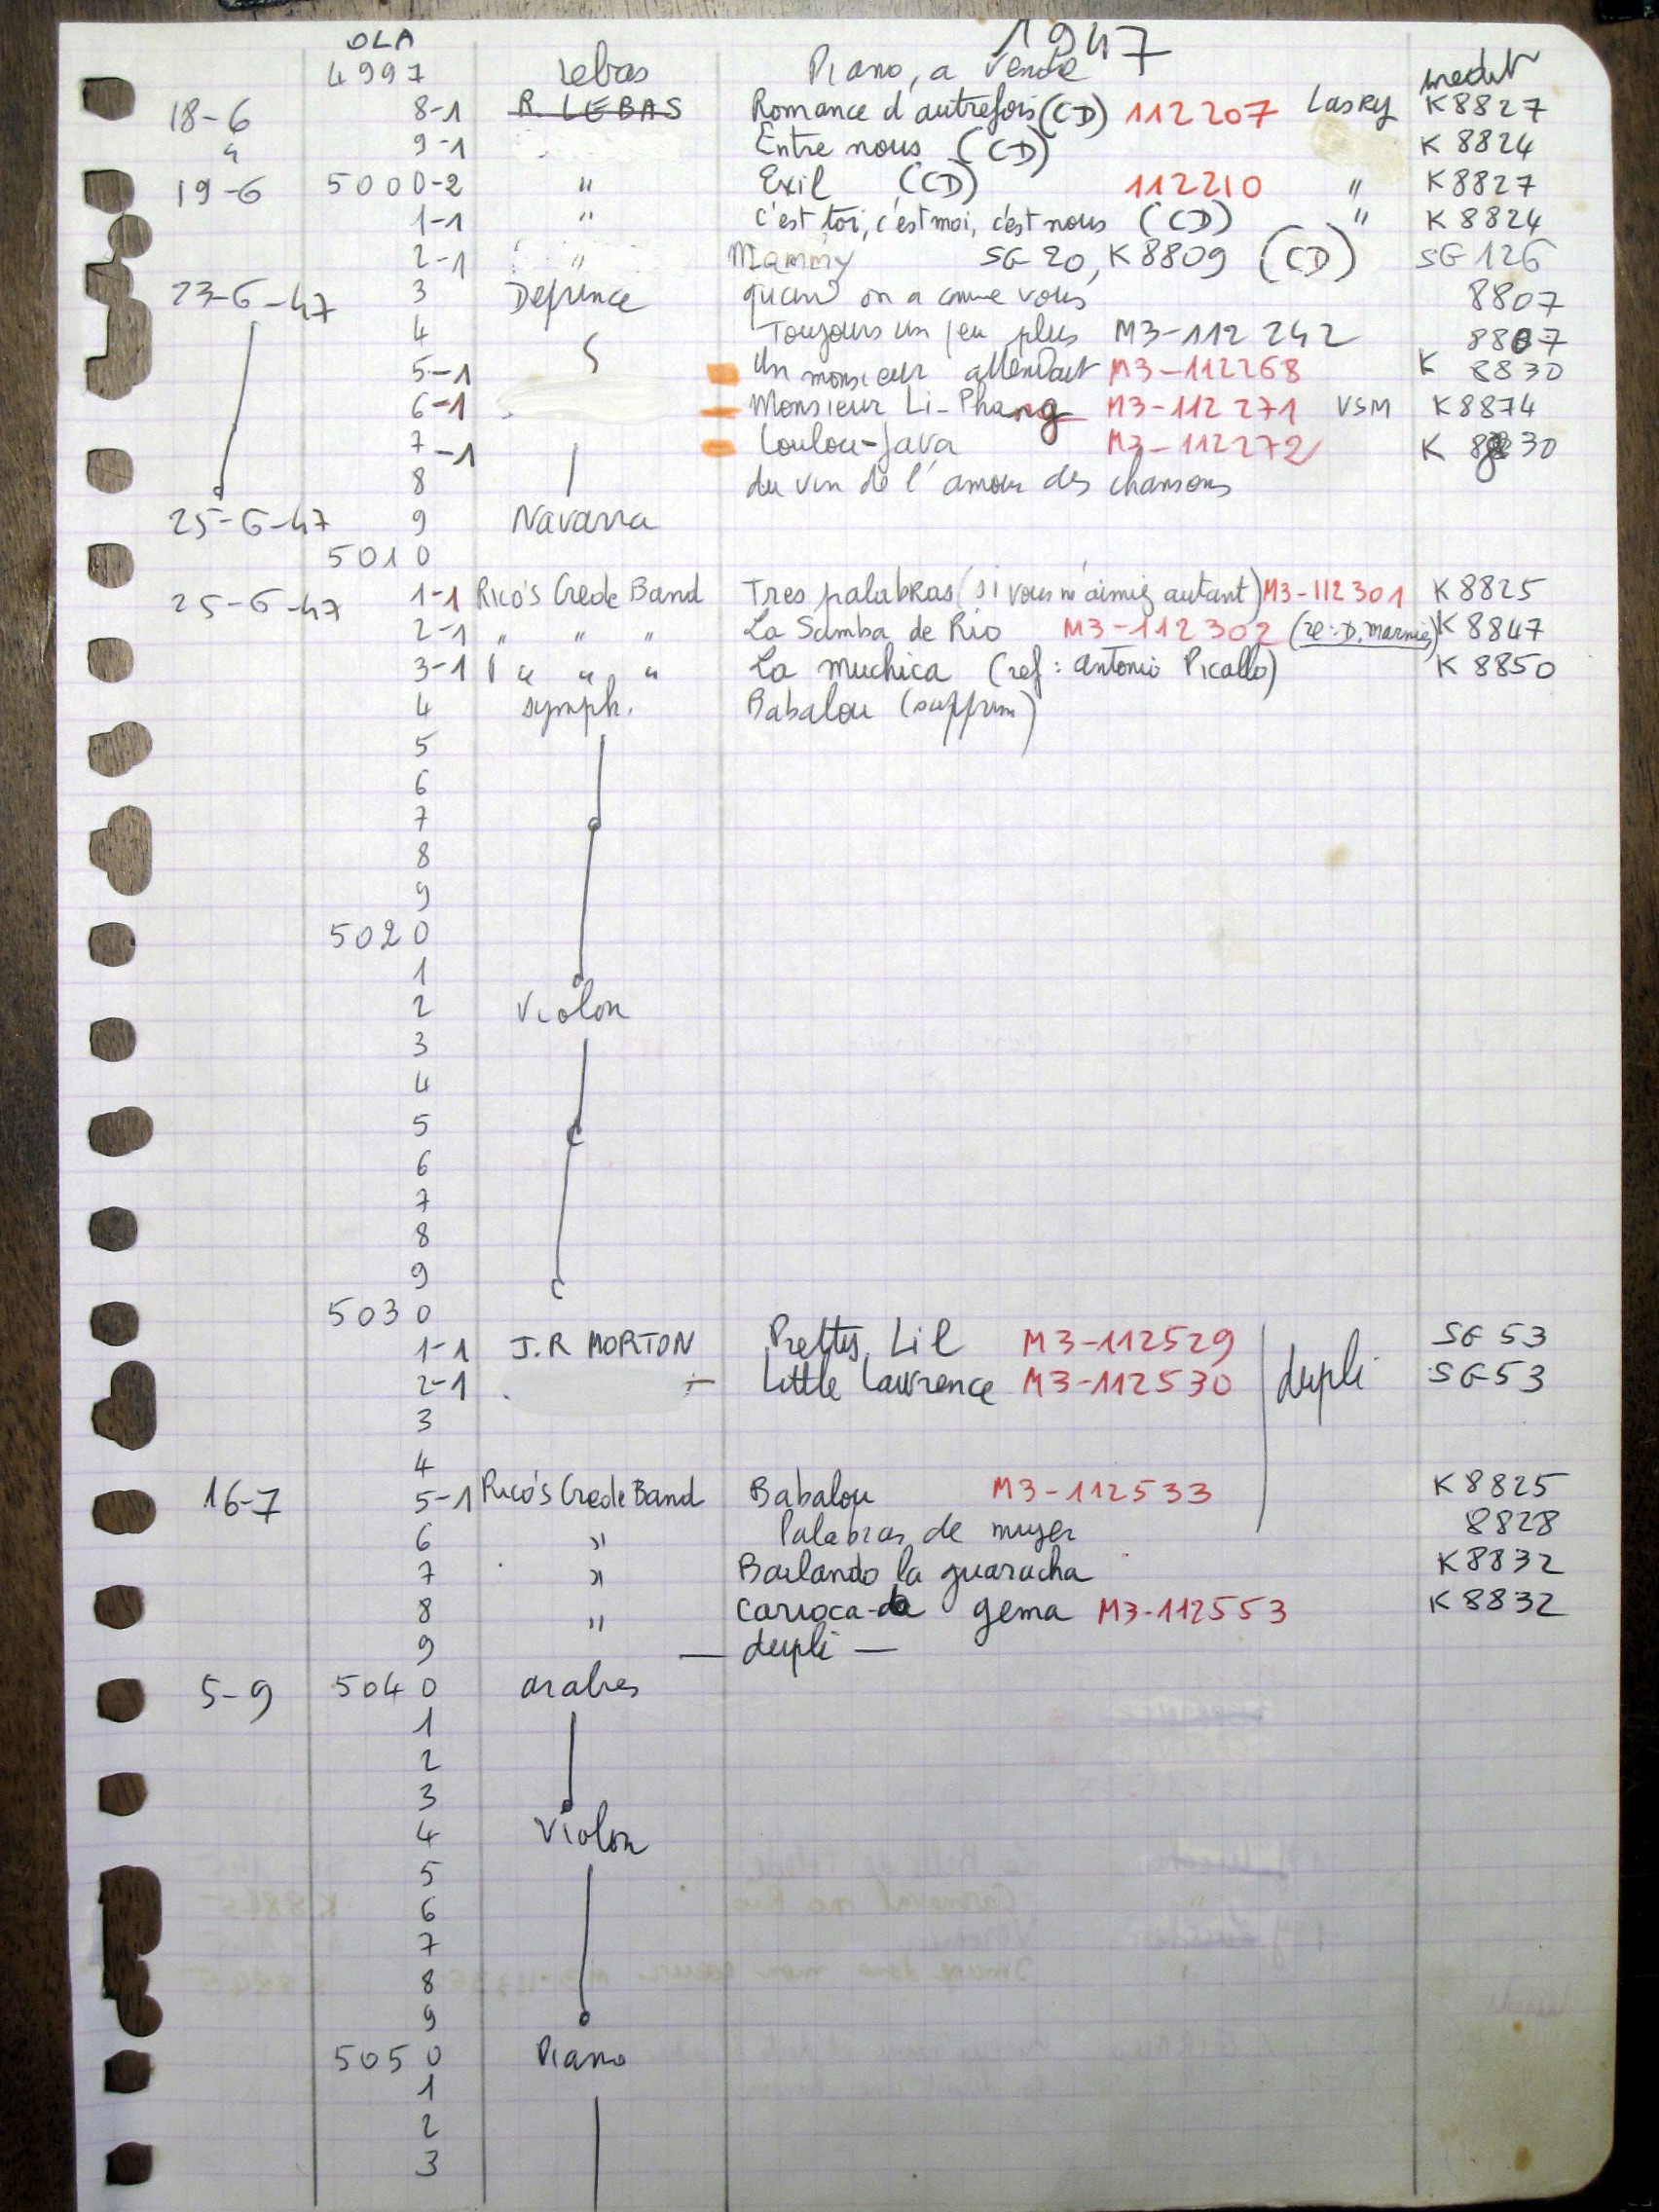 1947
OLA
4997 Lebas Piano, a vendre inedit
18-6 8-1 R. LEBAS Romance d'autrefois (CD) 112207 Lasry K8827
" 9-1 Entre nous (CD) K 8824
19-6 5000-2 " Exil (CD) 112210 " K8827
1-1 " c'est toi, c'est moi, c'est nous (CD) " K 8824
2-1 " Mammy SG 20, K8809 (CD) SG 126
23-6-47 3 Deprince quand on a comme vous 8807
4 Toujours un peu plus M3-112 242 8807
5-1 Un monsieur attendait M3-112268 K 8830
6-1 Monsieur Li-Phang M3-112 271 VSM K8874
7-1 Loulou-Java M3-112272 K 8830
8 du vin de l'amour des chansons
25-6-47 9 Navarra
5010
25-6-47 1-1 Rico's Creole Band Tres palabras (si vous m'aimiez autant) M3-112301 K8825
2-1 " " " La Samba de Rio M3-112302 K8847
3-1 " " " La muchica (ref: antonio Picallo) K 8850
4 symph. Babalou (supprim)
5
6
7
8
9
5020
1
2 Violon
3
4
5
6
7
8
9
5030
1-1 J.R MORTON Prettes Lil M3-112529 SG 53
2-1 Little Lawrence M3-112530 dupli SG53
3
4
16-7 5-1 Rico's Creole Band Babalou M3-112533 K8825
6 " Palabras de mujer 8828
7 " Bailando la guaracha K8832
8 " Carioca-da gema M3-112553 K8832
9 — dupli —
5-9 5040 arabes
1
2
3
4 Violon
5
6
7
8
9
5050 Piano
1
2
3